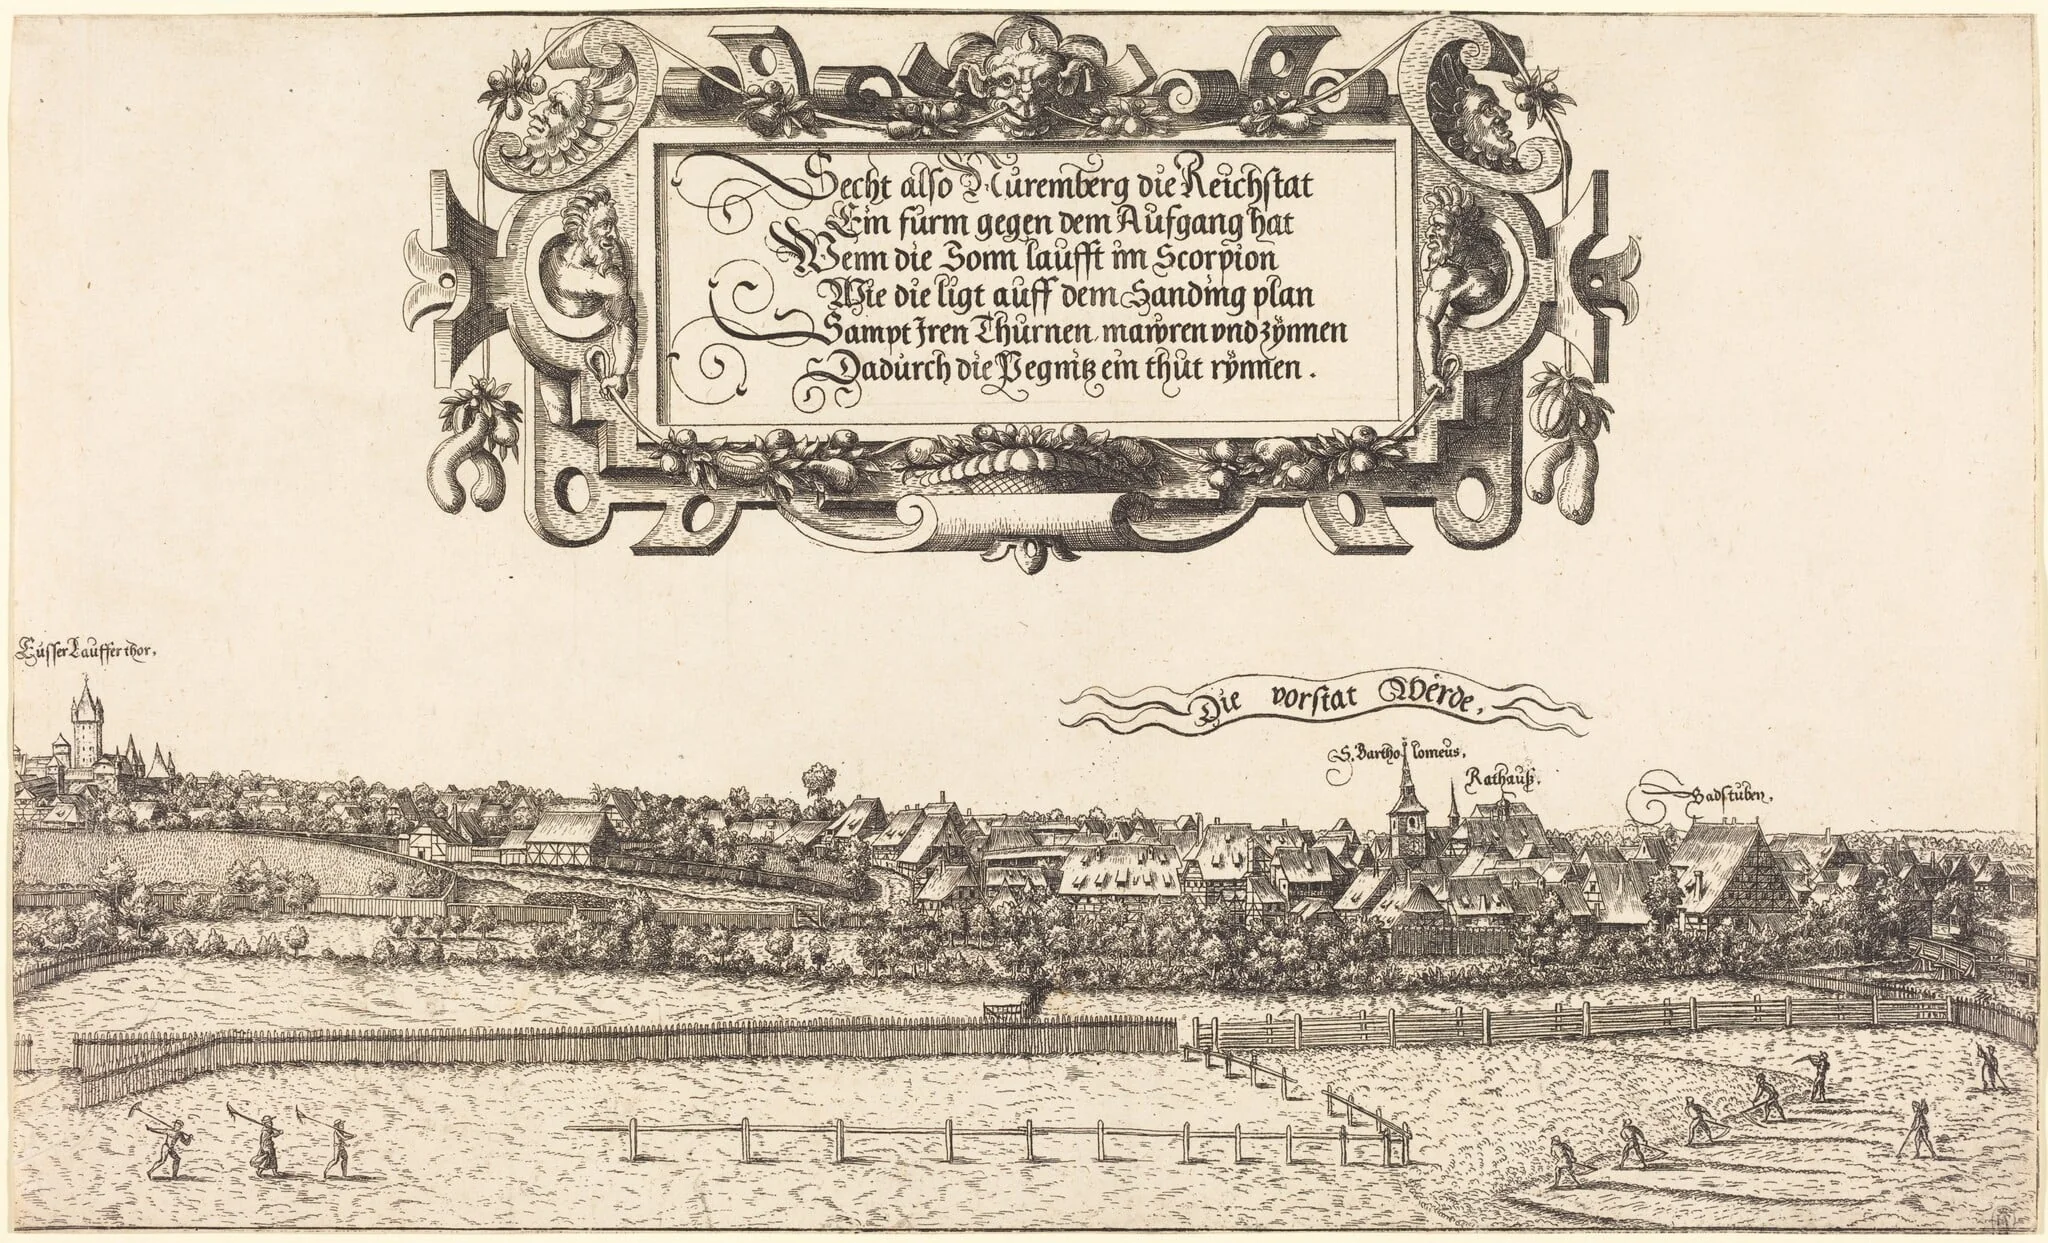 Secht also Nüremberg die Reichstat
Ein fürm gegen dem Aufgang hat
Wenn die Sonn laufft im Scorpion
Wie die ligt auff dem SandING plan
Sampt Jren Thürnen mawren vnd zÿnnen
Dadürch die Pegnitz ein thüt rÿnnen.
Eüsser Lauffer thor.
Die vorstat Werde.
S. Bartholomeüs.
Rathauß.
Badstüben.